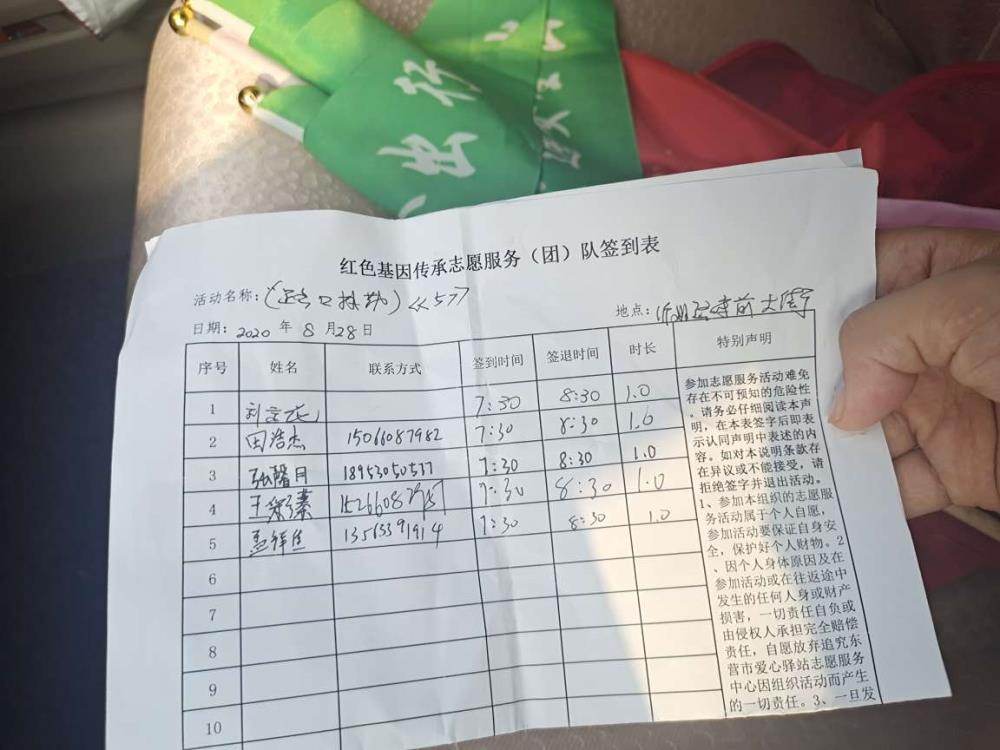 出行
红色基因传承志愿服务（团）队签到表
活动名称：（路口执勤）《57》
地点：
前大街
日期：2020 年 8 月 28 日
序号 姓名 联系方式 签到时间 签退时间 时长 特别声明
1 7:30 8:30 1.0
2 田浩杰 15066087982 7:30 8:30 1.0
3 张馨月 18953050577 7:30 8:30 1.0
4 7:30 8:30 1.0
5 13563391914 7:30 8:30 1.0
6
7
8
9
10
参加志愿服务活动难免
存在不可预知的危险性
。请务必仔细阅读本声
明，在本表签字后即表
示认同声明中表述的内
容。如对本说明条款存
在异议或不能接受，请
拒绝签字并退出活动。
1、参加本组织的志愿服
务活动属于个人自愿，
参加活动要保证自身安
全，保护好个人财物。2
、因个人身体原因及在
参加活动或在往返途中
发生的任何人身或财产
损害，一切责任自负或
由侵权人承担完全赔偿
责任，自愿放弃追究东
营市爱心驿站志愿服务
中心因组织活动而产生
的一切责任。3、一旦发